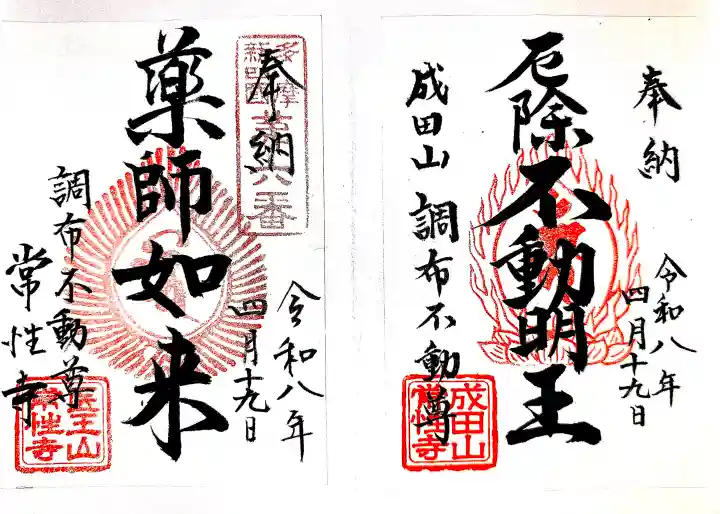 奉納
厄除不動明王
成田山 調布不動尊
令和八年
四月十九日
成田山
常性寺
奉納
薬師如来
調布不動尊
常性寺
令和八年
四月十九日
多摩
八番
医王山
常性寺